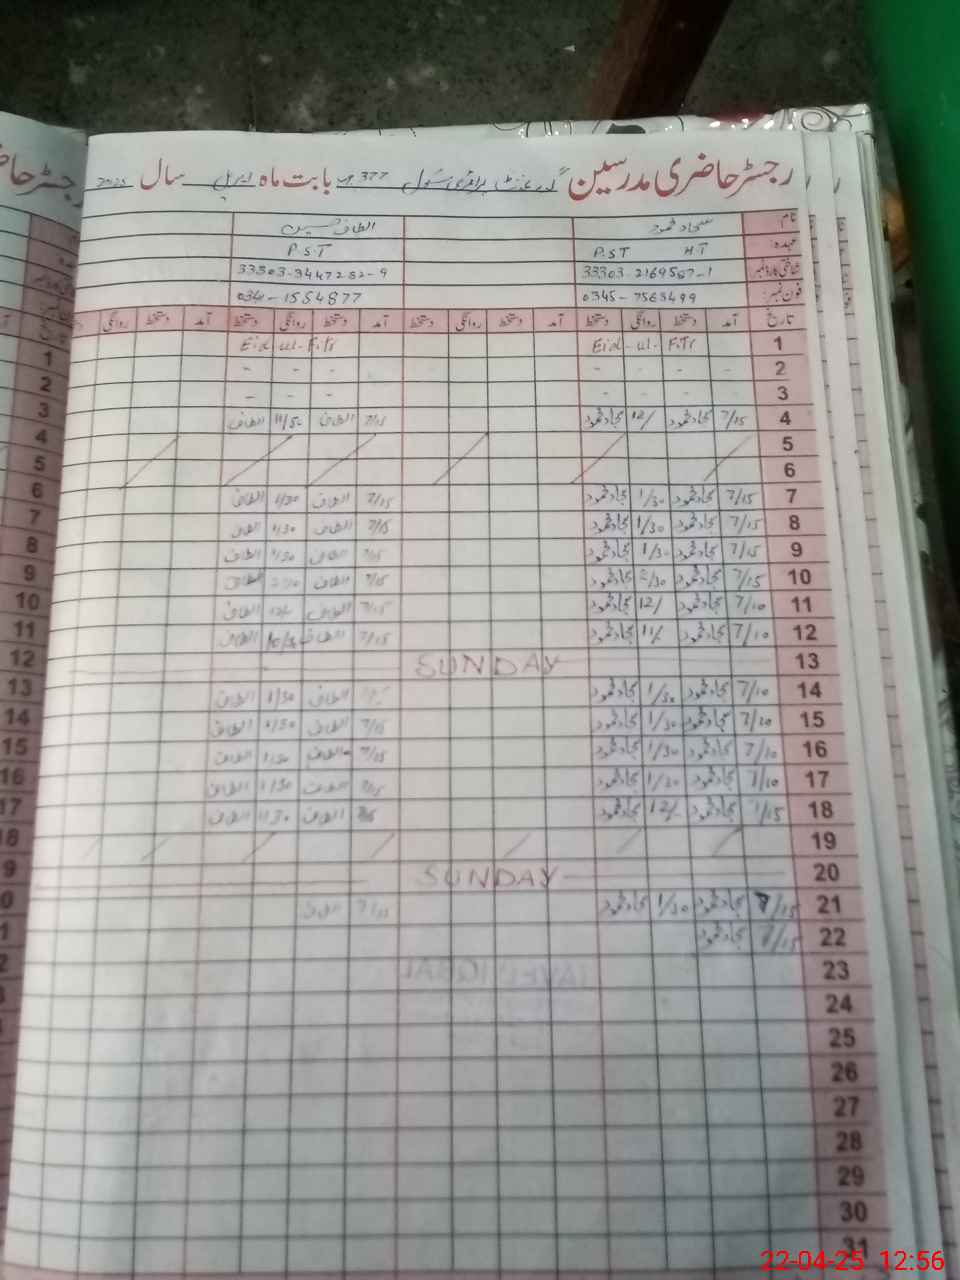 رجسٹر حاضری مدرسین گورنمنٹ پرائمری سکول 377 ج ب بابت ماہ اپریل سال 2025
نام: سجاد محمود الطاف حسین
عہدہ: P.S.T H.T P.S.T
شناختی کارڈ نمبر: 33303-2169587-1 33303-3447282-9
فون نمبر: 0345-7565499 0341-1554877
تاریخ آمد دستخط روانگی دستخط آمد دستخط روانگی دستخط آمد دستخط روانگی دستخط آمد دستخط روانگی
1 Eid-ul-Fitr Eid-ul-Fitr
2 - - - - - - -
3 - - - - - -
4 7/15 سجاد محمود 12/ سجاد محمود 7/15 الطاف 11/50 الطاف
5
6
7 7/15 سجاد محمود 1/30 سجاد محمود 7/15 الطاف 1/30 الطاف
8 7/15 سجاد محمود 1/30 سجاد محمود 7/15 الطاف 1/30 الطاف
9 7/15 سجاد محمود 1/30 سجاد محمود 7/15 الطاف 1/30 الطاف
10 7/15 سجاد محمود 2/30 سجاد محمود 7/15 الطاف الطاف
11 7/10 سجاد محمود 12/ سجاد محمود 7/15 الطاف 12/ الطاف
12 7/10 سجاد محمود 11/ سجاد محمود 7/15 الطاف الطاف
13 SUNDAY
14 7/10 سجاد محمود 1/30 سجاد محمود الطاف 1/30 الطاف
15 7/10 سجاد محمود 1/30 سجاد محمود 7/15 الطاف 1/30 الطاف
16 7/10 سجاد محمود 1/30 سجاد محمود 7/15 الطاف 1/30 الطاف
17 7/10 سجاد محمود 1/30 سجاد محمود 7/15 الطاف 1/30 الطاف
18 7/15 سجاد محمود 12/- سجاد محمود 7/15 الطاف 11/30 الطاف
19
20 SUNDAY
21 7/15 سجاد محمود 1/30 سجاد محمود 7/15 الطاف
22 7/15 سجاد محمود
23
24
25
26
27
28
29
30
31
22-04-25 12:56